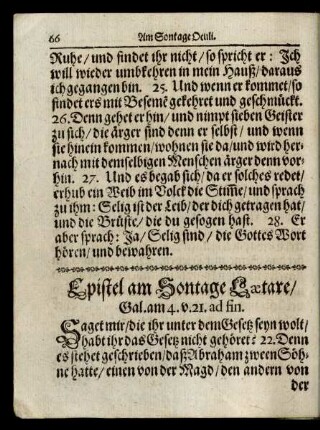 66 Am Sontage Oculi.
Ruhe/ und findet ihr nicht/ so spricht er: Ich
will wieder umbkehren in mein Hauß/ daraus
ich gegangen bin. 25. Und wenn er kommet/ so
findet ers mit Besemē gekehret und geschmückt.
26. Denn gehet er hin/ und nimpt sieben Geister
zu sich/ die ärger sind denn er selbst/ und wenn
sie hinein kommen/ wohnen sie da/ und wird her-
nach mit demselbigen Menschen ärger denn vor-
hin. 27. Und es begab sich/ da er solches redet/
erhub ein Weib im Volck die Stim̄e/ und sprach
zu ihm: Selig ist der Leib/ der dich getragen hat/
und die Brüste/ die du gesogen hast. 28. Er
aber sprach: Ja/ Selig sind/ die Gottes Wort
hören/ und bewahren.
Epistel am Sontage Lætare/
Gal. am 4. v. 21. ad fin.
Saget mir/ die ihr unter dem Gesetz seyn wolt/
habt ihr das Gesetz nicht gehöret? 22. Denn
es stehet geschrieben/ daß Abraham zween Söh-
ne hatte/ einen von der Magd/ den andern von
der